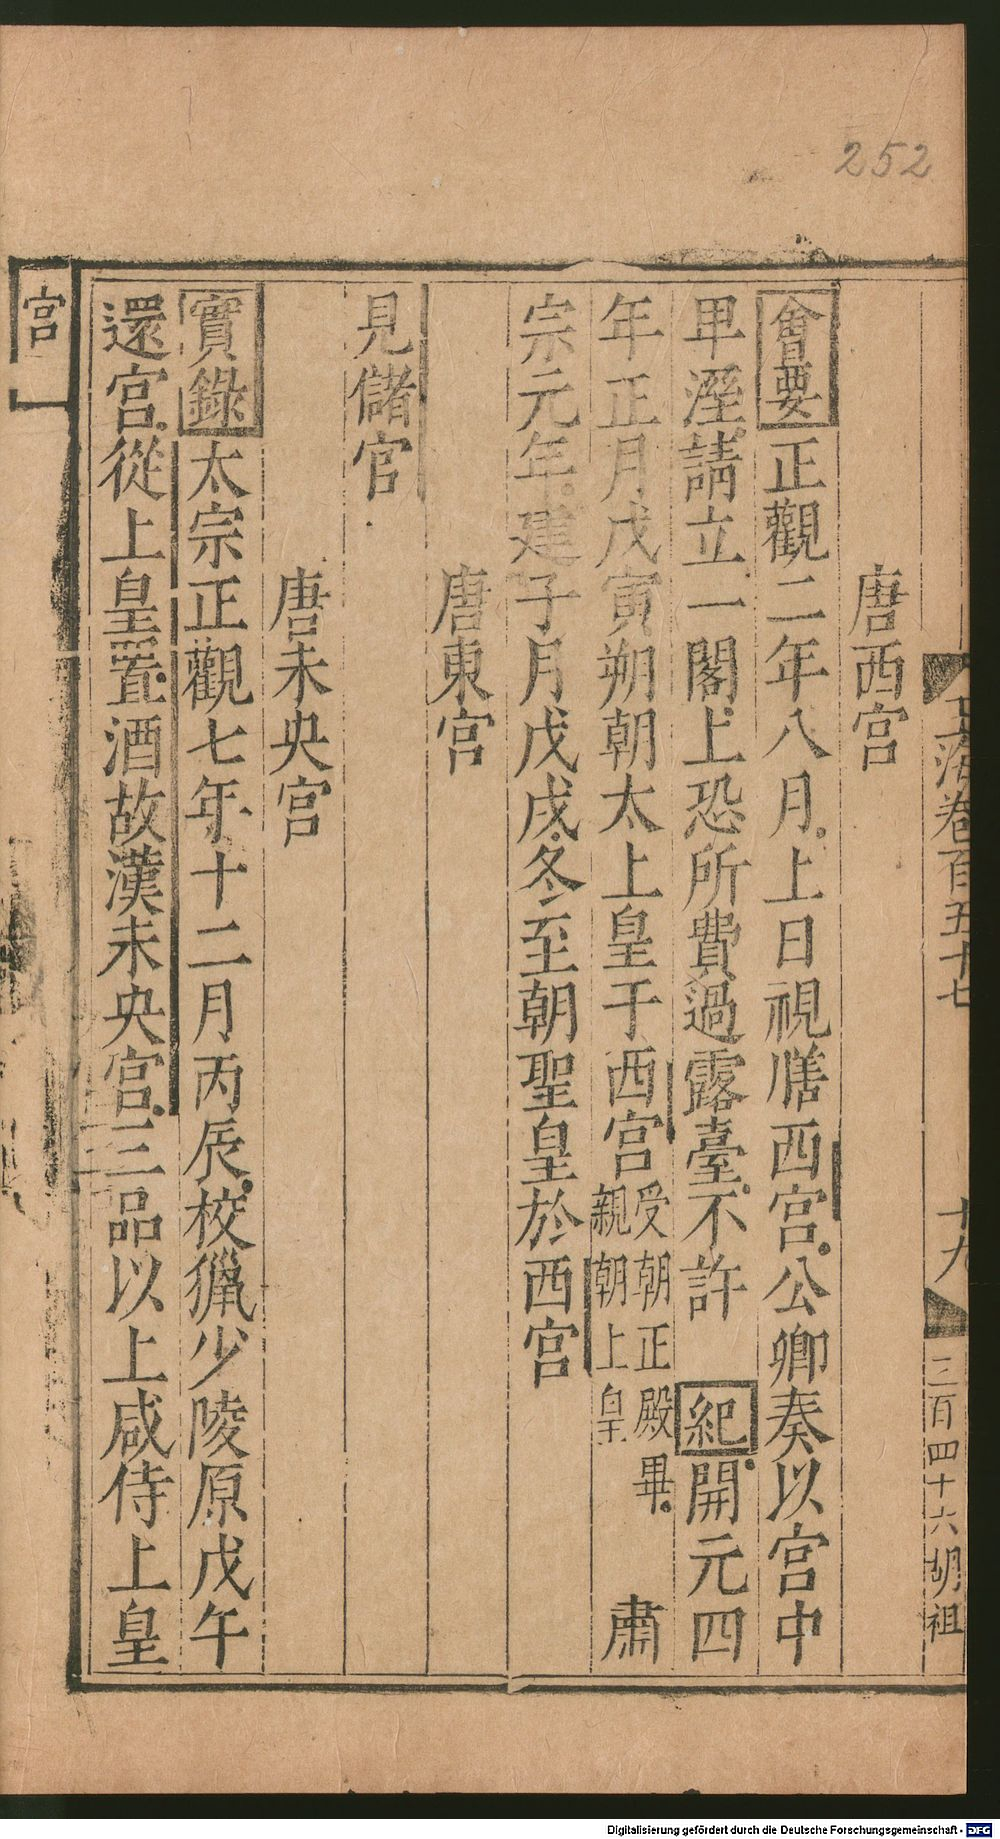 252
玉海卷百五十七
十九
三百四十六胡祖
唐西宮
會要正觀二年八月上日視膳西宮公卿奏以宮中
卑溼請立一閣上恐所費過露臺不許 紀開元四
年正月戊寅朔朝太上皇于西宮受朝正殿畢親朝上皇 肅
宗元年建子月戊戌冬至朝聖皇於西宮
唐東宮
見儲官
唐未央宮
實錄太宗正觀七年十二月丙辰校獵少陵原戊午
還宮從上皇置酒故漢未央宮三品以上咸侍上皇
宮
Digitalisierung gefördert durch die Deutsche Forschungsgemeinschaft - DFG